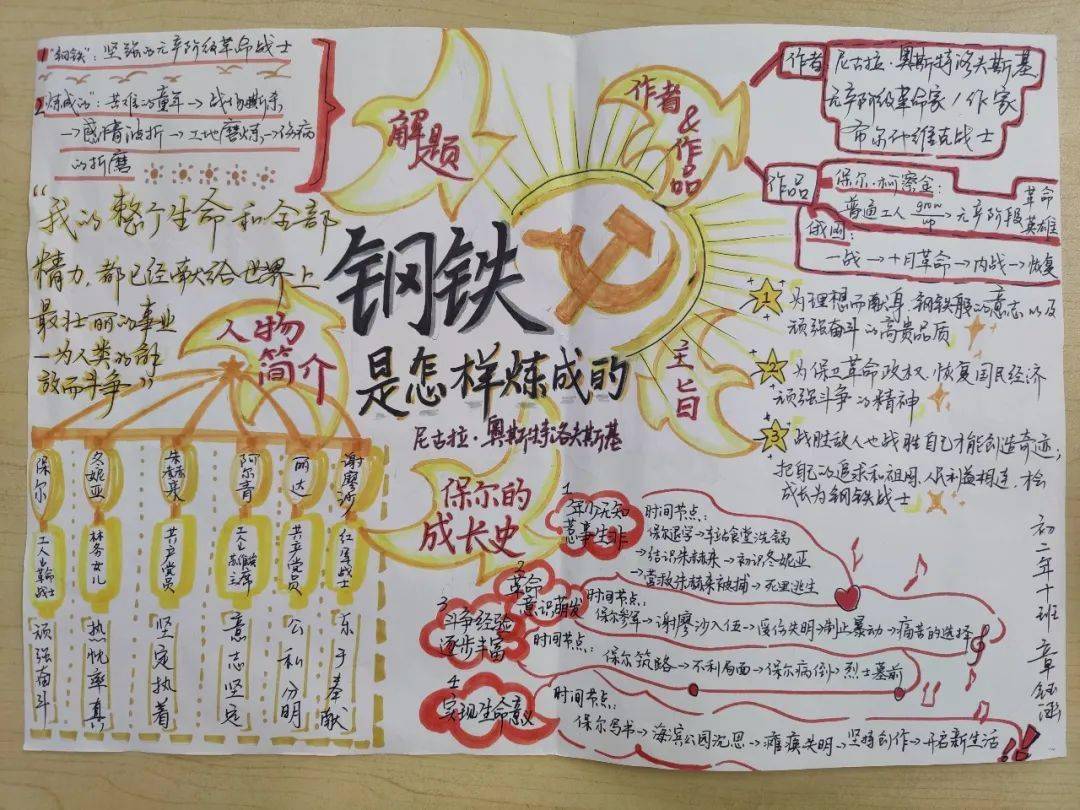 1."钢铁"：坚强的无产阶级革命战士
2."炼成的"：苦难的童年→战场厮杀
→感情波折→工地磨炼→伤病
的折磨
解题
"我的整个生命和全部
精力，都已经献给世界上
最壮丽的事业
—为人类的解
放而斗争"
作者
&
作品
作者
尼古拉·奥斯特洛夫斯基
无产阶级革命家/作家
布尔什维克战士
作品
保尔·柯察金：
普通工人 grow up→无产阶段革命英雄
俄国：
一战→十月革命→内战→恢复
钢铁
是怎样炼成的
尼古拉·奥斯特洛夫斯基
主旨
1 为理想而献身，钢铁般的意志以及
顽强奋斗的高贵品质
2 为保卫革命政权，恢复国民经济
顽强斗争的精神
3 战胜敌人也战胜自己才能创造奇迹，
把自己的追求和祖国、人民利益相连，才会
成长为钢铁战士
人物
简介
保尔
工人出革命战士
顽强奋斗
冬妮亚
林务女儿
热忱率真
朱赫来
共产党员
坚定执着
阿尔青
工人出
主席
意志坚定
丽达
共产党员
公私分明
谢廖沙
红军战士
乐于奉献
保尔的
成长史
1 年少无知
惹事生非
时间节点：
保尔退学→车站食堂洗锅
→结识朱赫来→初识冬妮亚
→营救朱赫来被捕→死里逃生
2 革命
意识萌发
时间节点：
保尔参军→谢廖沙入伍→受伤失明→制止暴动→痛苦的选择
3 斗争经验
逐步丰富
时间节点：
保尔筑路→不利局面→保尔病倒→烈士墓前
4
实现生命意义
时间节点：
保尔写书→海滨公园沉思→瘫痪失明→坚持创作→开启新生活
初二年十班 章钰涵